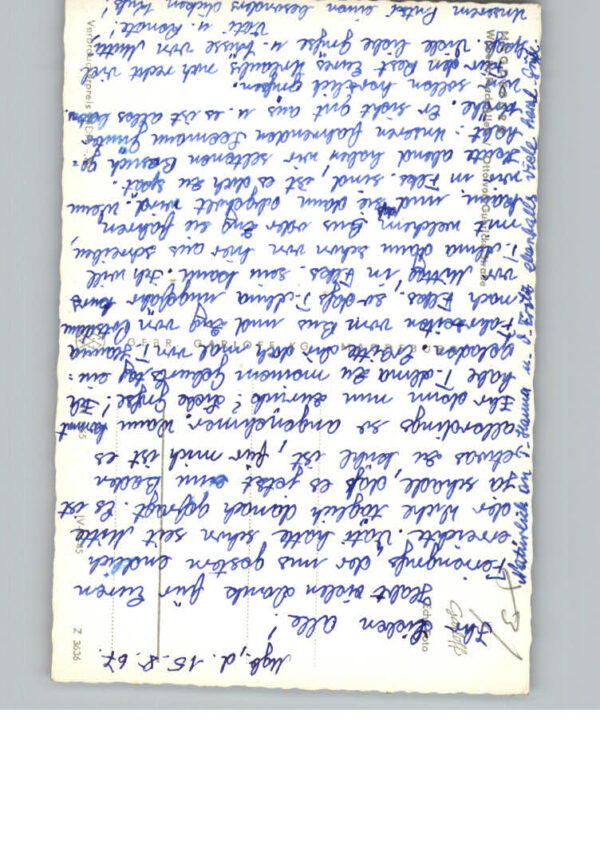 Mgb., d. 15.8.67.
Ihr Lieben alle!
Habt vielen Dank für Euren
Feriengruß der uns gestern endlich
erreichte. Vati hatte schon seit Mitte
der Woche täglich danach gefragt. Es ist
ja schade, daß es jetzt zum Baden
etwas zu kühl ist, für mich ist es
allerdings so angenehmer. Wann kommt
Ihr denn nun zurück? Liebe Grüße! Ich
habe T. Anna zu meinem Geburtstag ein-
geladen. Erbitte doch mal von T. Hanna
Fahrzeiten vom Bus und Zug von Potsdam
nach Elbs. so daß T. Anna ungefähr kurz
vor Mittag in Elbs. sein kann. Ich will
T. Anna dann schon von hier aus schreiben,
mit welchem Bus oder Zug sie fahren
kann, und daß sie dann abgeholt wird wenn
wir in Elbs. sind, ist es doch zu spät.
Heute abend haben wir seltenen Besuch ge-
habt: Unseren fahrenden Seemann
Er sieht gut aus u. es ist alles
wir sollen herzlich grüßen.
Für den Rest Eures Urlaubs noch recht viel
Spaß. Viele liebe Grüße u. Küsse von Mutti,
Vati u. Renate!
Unserem einen besonders dicken Kuß!
Natürlich an T. Hanna u. O. ebenfalls viele herzl. Grüße
GEBR. GARLOFF KG. MAGDEBURG
Z 3636
Echt Foto
Verbraucherpreis MDN